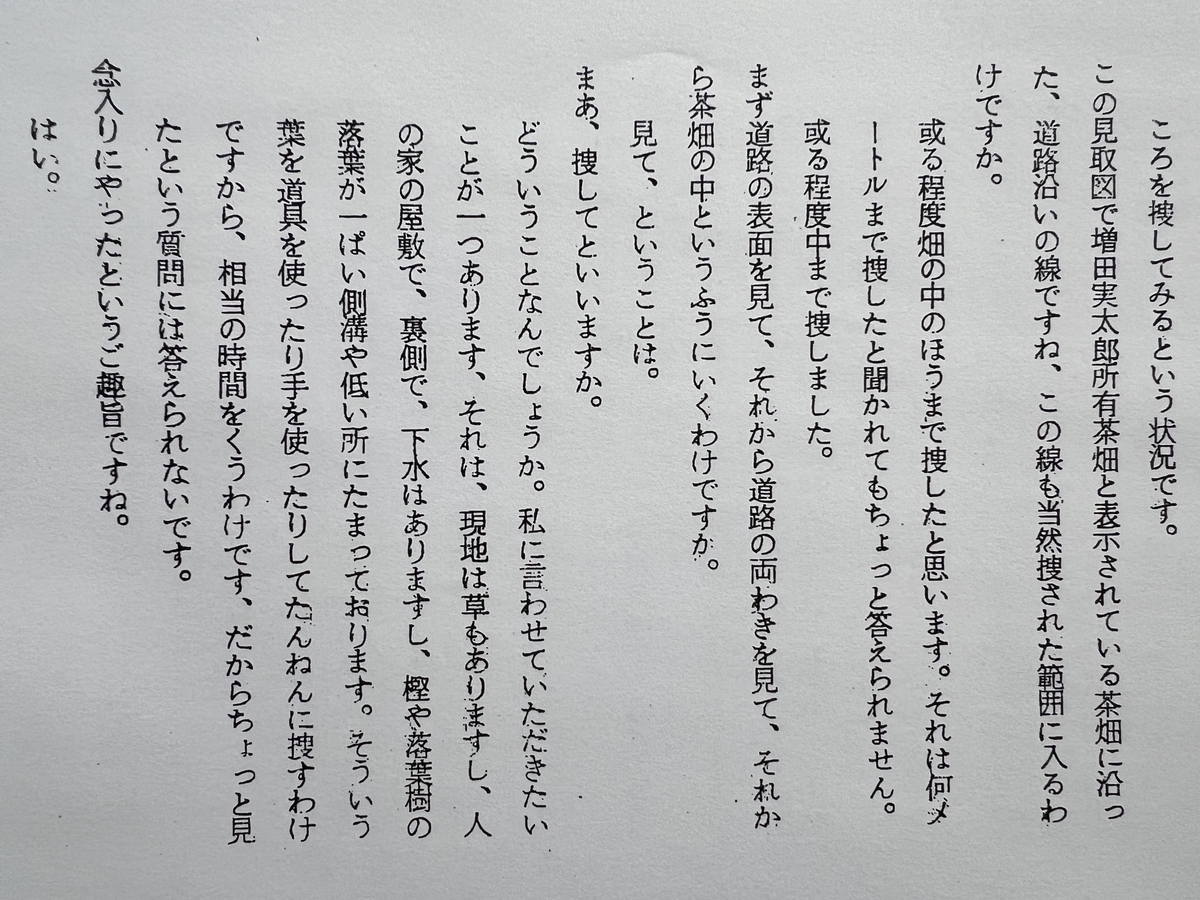 ころを捜してみるという状況です。
この見取図で増田実太郎所有茶畑と表示されている茶畑に沿っ
た、道路沿いの線ですね、この線も当然捜された範囲に入るわ
けですか。
或る程度畑の中のほうまで捜したと思います。それは何メ
ートルまで捜したと聞かれてもちょっと答えられません。
或る程度中まで捜しました。
まず道路の表面を見て、それから道路の両わきを見て、それか
ら茶畑の中というふうにいくわけですか。
見て、ということは。
まあ、捜してといいますか。
どういうことなんでしょうか。私に言わせていただきたい
ことが一つあります、それは、現地は草もありますし、人
の家の屋敷で、裏側で、下水はありますし、樫や落葉樹の
落葉が一ぱい側溝や低い所にたまっております。そういう
葉を道具を使ったり手を使ったりしてたんねんに捜すわけ
ですから、相当の時間をくうわけです、だからちょっと見
たという質問には答えられないです。
念入りにやったというご趣旨ですね。
はい。